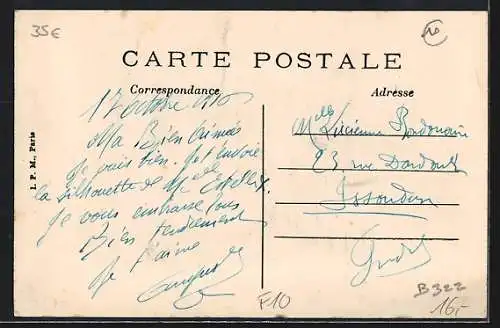 35€
10
CARTE POSTALE
Correspondance
Adresse
17 octobre 1916
Ma Bien Aimée
Je vais bien. Je t'envoie
la silhouette de Melle
Je vous embrasse tous
Bien tendrement
Je t'aime
Melle Lucienne
23 rue
Issoudun
Indre
I. P. M., Paris
F10
B322
16,-